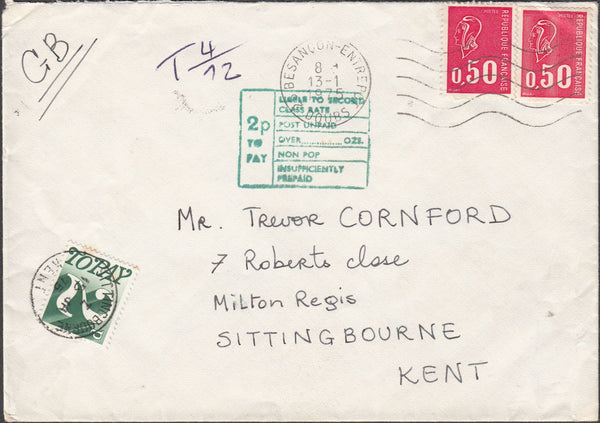 GB
T 4/12
BESANÇON-ENTREPOT
8
13-1
1975
DOUBS
REPUBLIQUE FRANÇAISE
0,50
REPUBLIQUE FRANÇAISE
0,50
2p
TO
PAY
LIABLE TO SECOND
CLASS RATE
POST UNPAID
OVER............OZS.
NON POP
INSUFFICIENTLY
PREPAID
Mr. Trevor CORNFORD
7 Roberts close
Milton Regis
SITTINGBOURNE
KENT
TO PAY
2
KENT